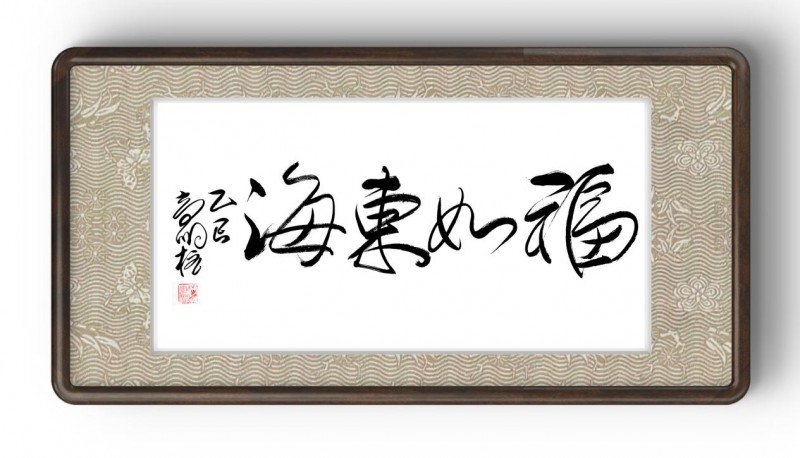 福如東海
乙巳